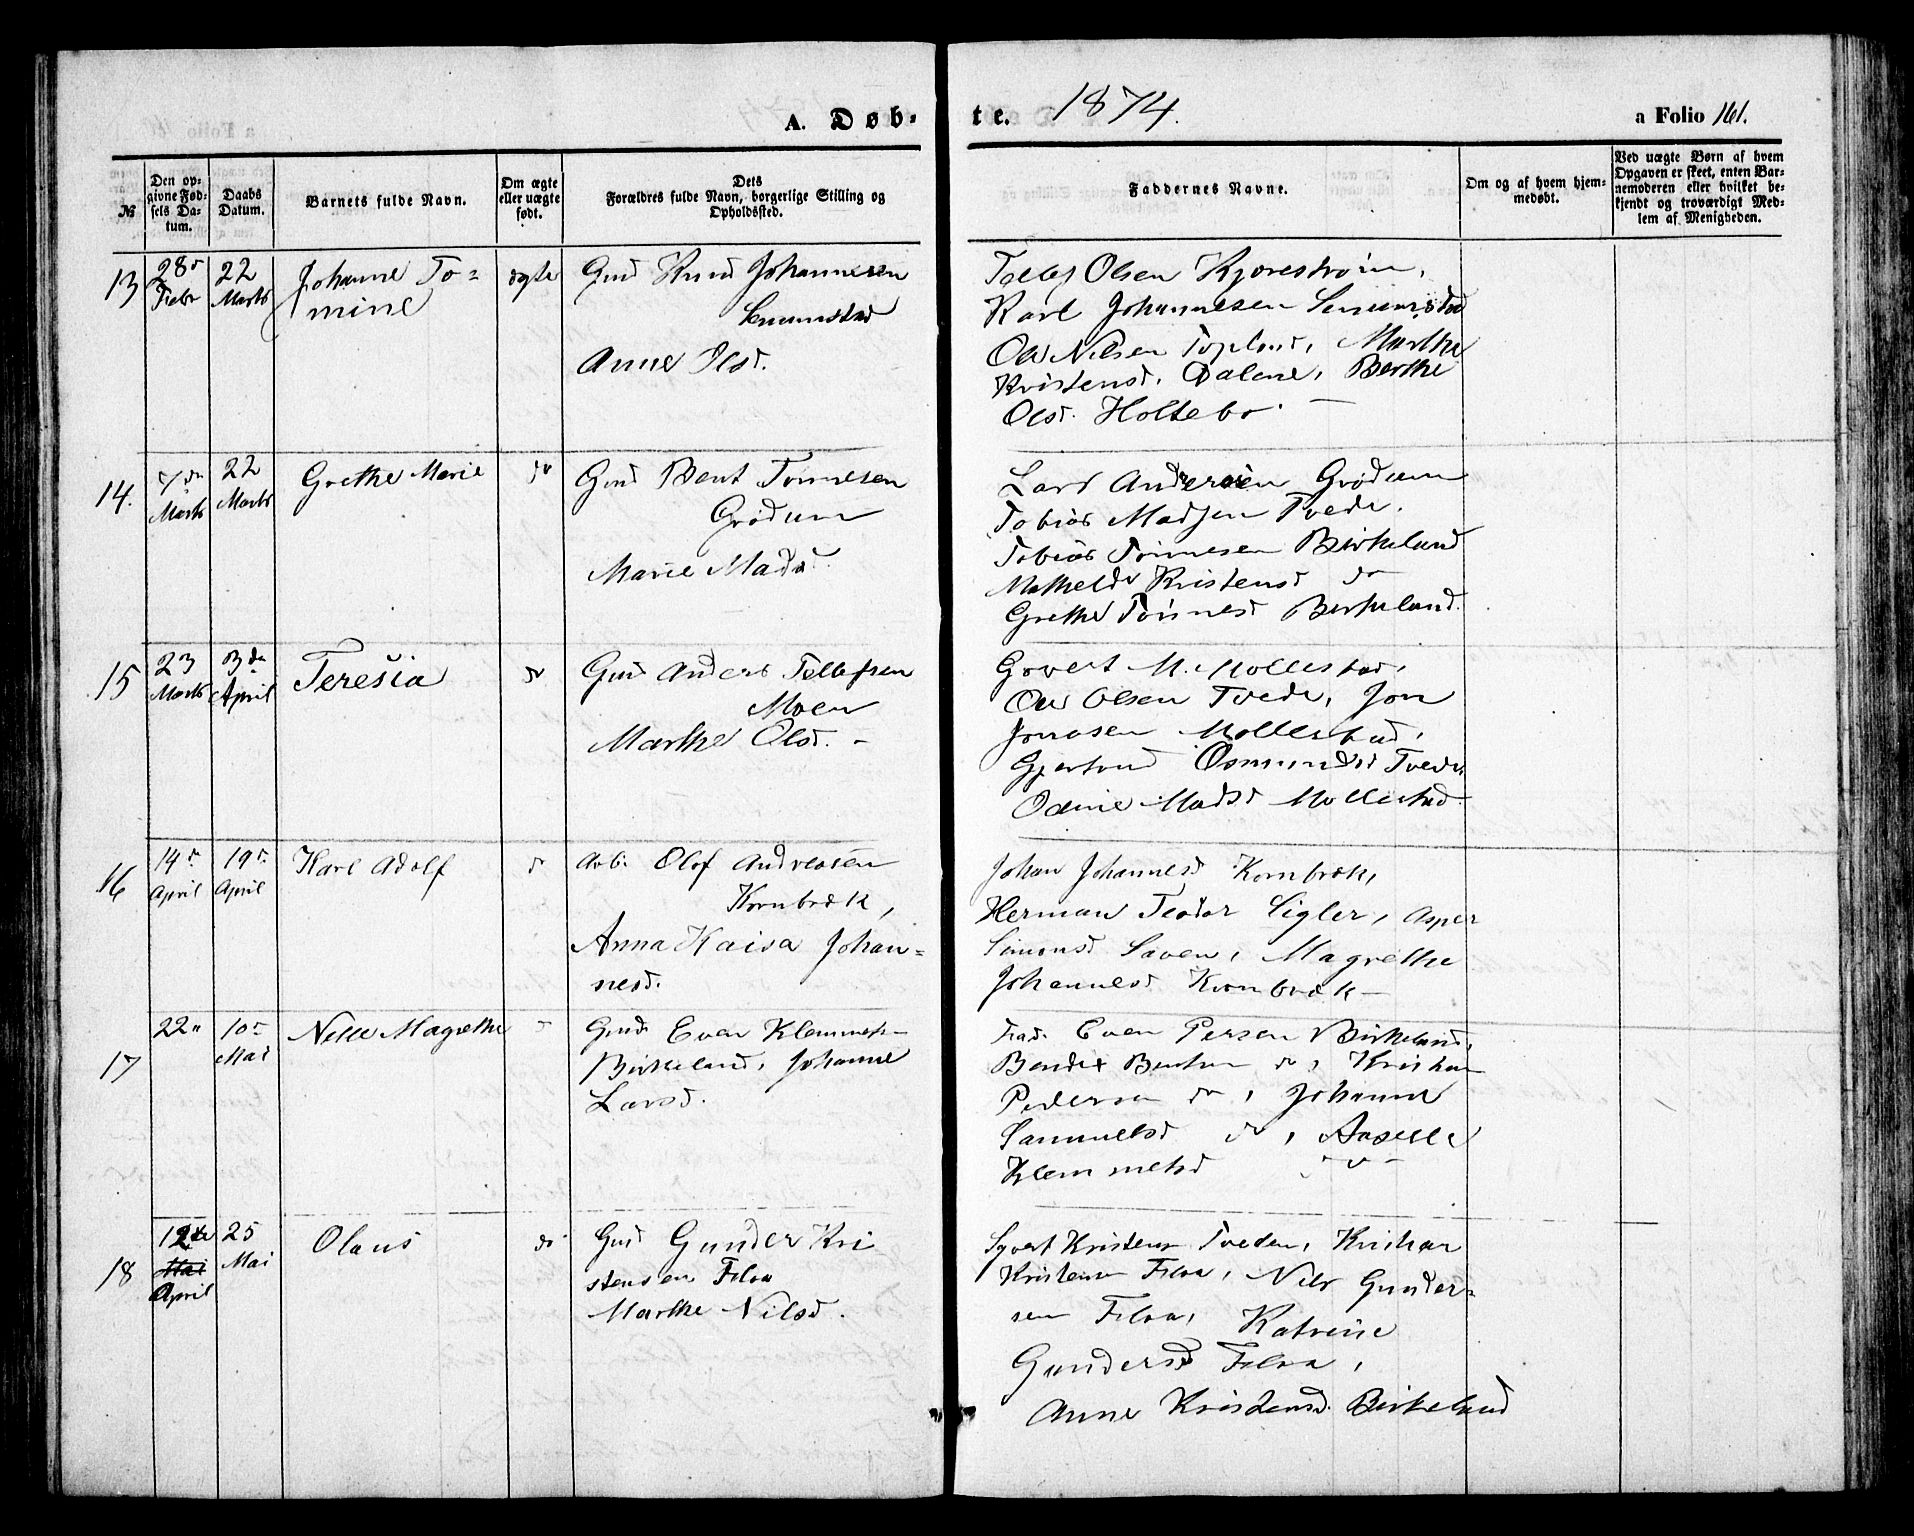 A. Døb-
te. 1874.
a Folio 161.
№
Den op-
givne Fød-
sels Da-
tum.
Daabs
Datum.
Barnets fulde Navn.
Om ægte
eller uægte
født.
Dets
Forældres fulde Navn, borgerlige Stilling og
Opholdssted.
Faddernes Navne.
Om og af hvem hjem-
medøbt.
Ved uægte Børn af hvem
Opgaven er skeet, enten Bar-
nemoderen eller hvilket be-
kjendt og troværdigt Med-
lem af Menigheden.
13
28
Febr
22
Marts
Johanne To=
mine
ægte
Gmd Knud Johannesen
Anne Olsd.
Tellef Olsen
Karl Johannesen
Ole Nilsen Topland, Marthe
Kristensd. Dalene, Berthe
Olsd. Holtebo.
14.
7de
Marts
22
Marts
Grethe Marie
do
Gmd Bent Tønnesen
Grødum
Marie Madsd.
Lars Andersen Grødum
Tobias Madsen Tvede.
Tobias Tønnesen Birkeland
Mathelde Kristensd do
Grethe Tønnesd Birkeland.
15
23
Marts
3de
April
Teresia
do
Gmd Anders Tellefsen
Moen
Marthe Olsd. -
Govert M. Mollestad,
Ole Olsen Tvede, Jon
Jonasen Mollestad,
Gjertrud Osmundsd Tvede
Odine Madsd Mollestad
16
14d
April
19d
April
Karl Adolf
d
Arb. Olof Andreasen
Kornbrek,
Anna Kaisa Johan=
nesd.
Johan Johannesd Kornbrek,
Herman Teodor Sigler, Asper
Simonsd Saven, Magrethe
Johannesd Kornbrek -
17
22"
10d
Mai
Nelle Magrethe
Gmd Even Klemmets-
Birkeland, Johanne
Larsd.
Even Persen Birkeland,
Bendex Bentsen do, Kristian
Pedersen do, Johanne
Samuelsd do, Aasille
Klemmetsd
18
12te
Mai
April
25
Mai
Olaus
do
Gmd Gunder Kri
stensen Fleva
Marthe Nilsd.
Syvert Kristens Tveden, Kristian
Kristensen Fleva, Nils Gunder=
sen Fleva, Katrine
Gundersd Fleva,
Anne Kristensd. Birkeland